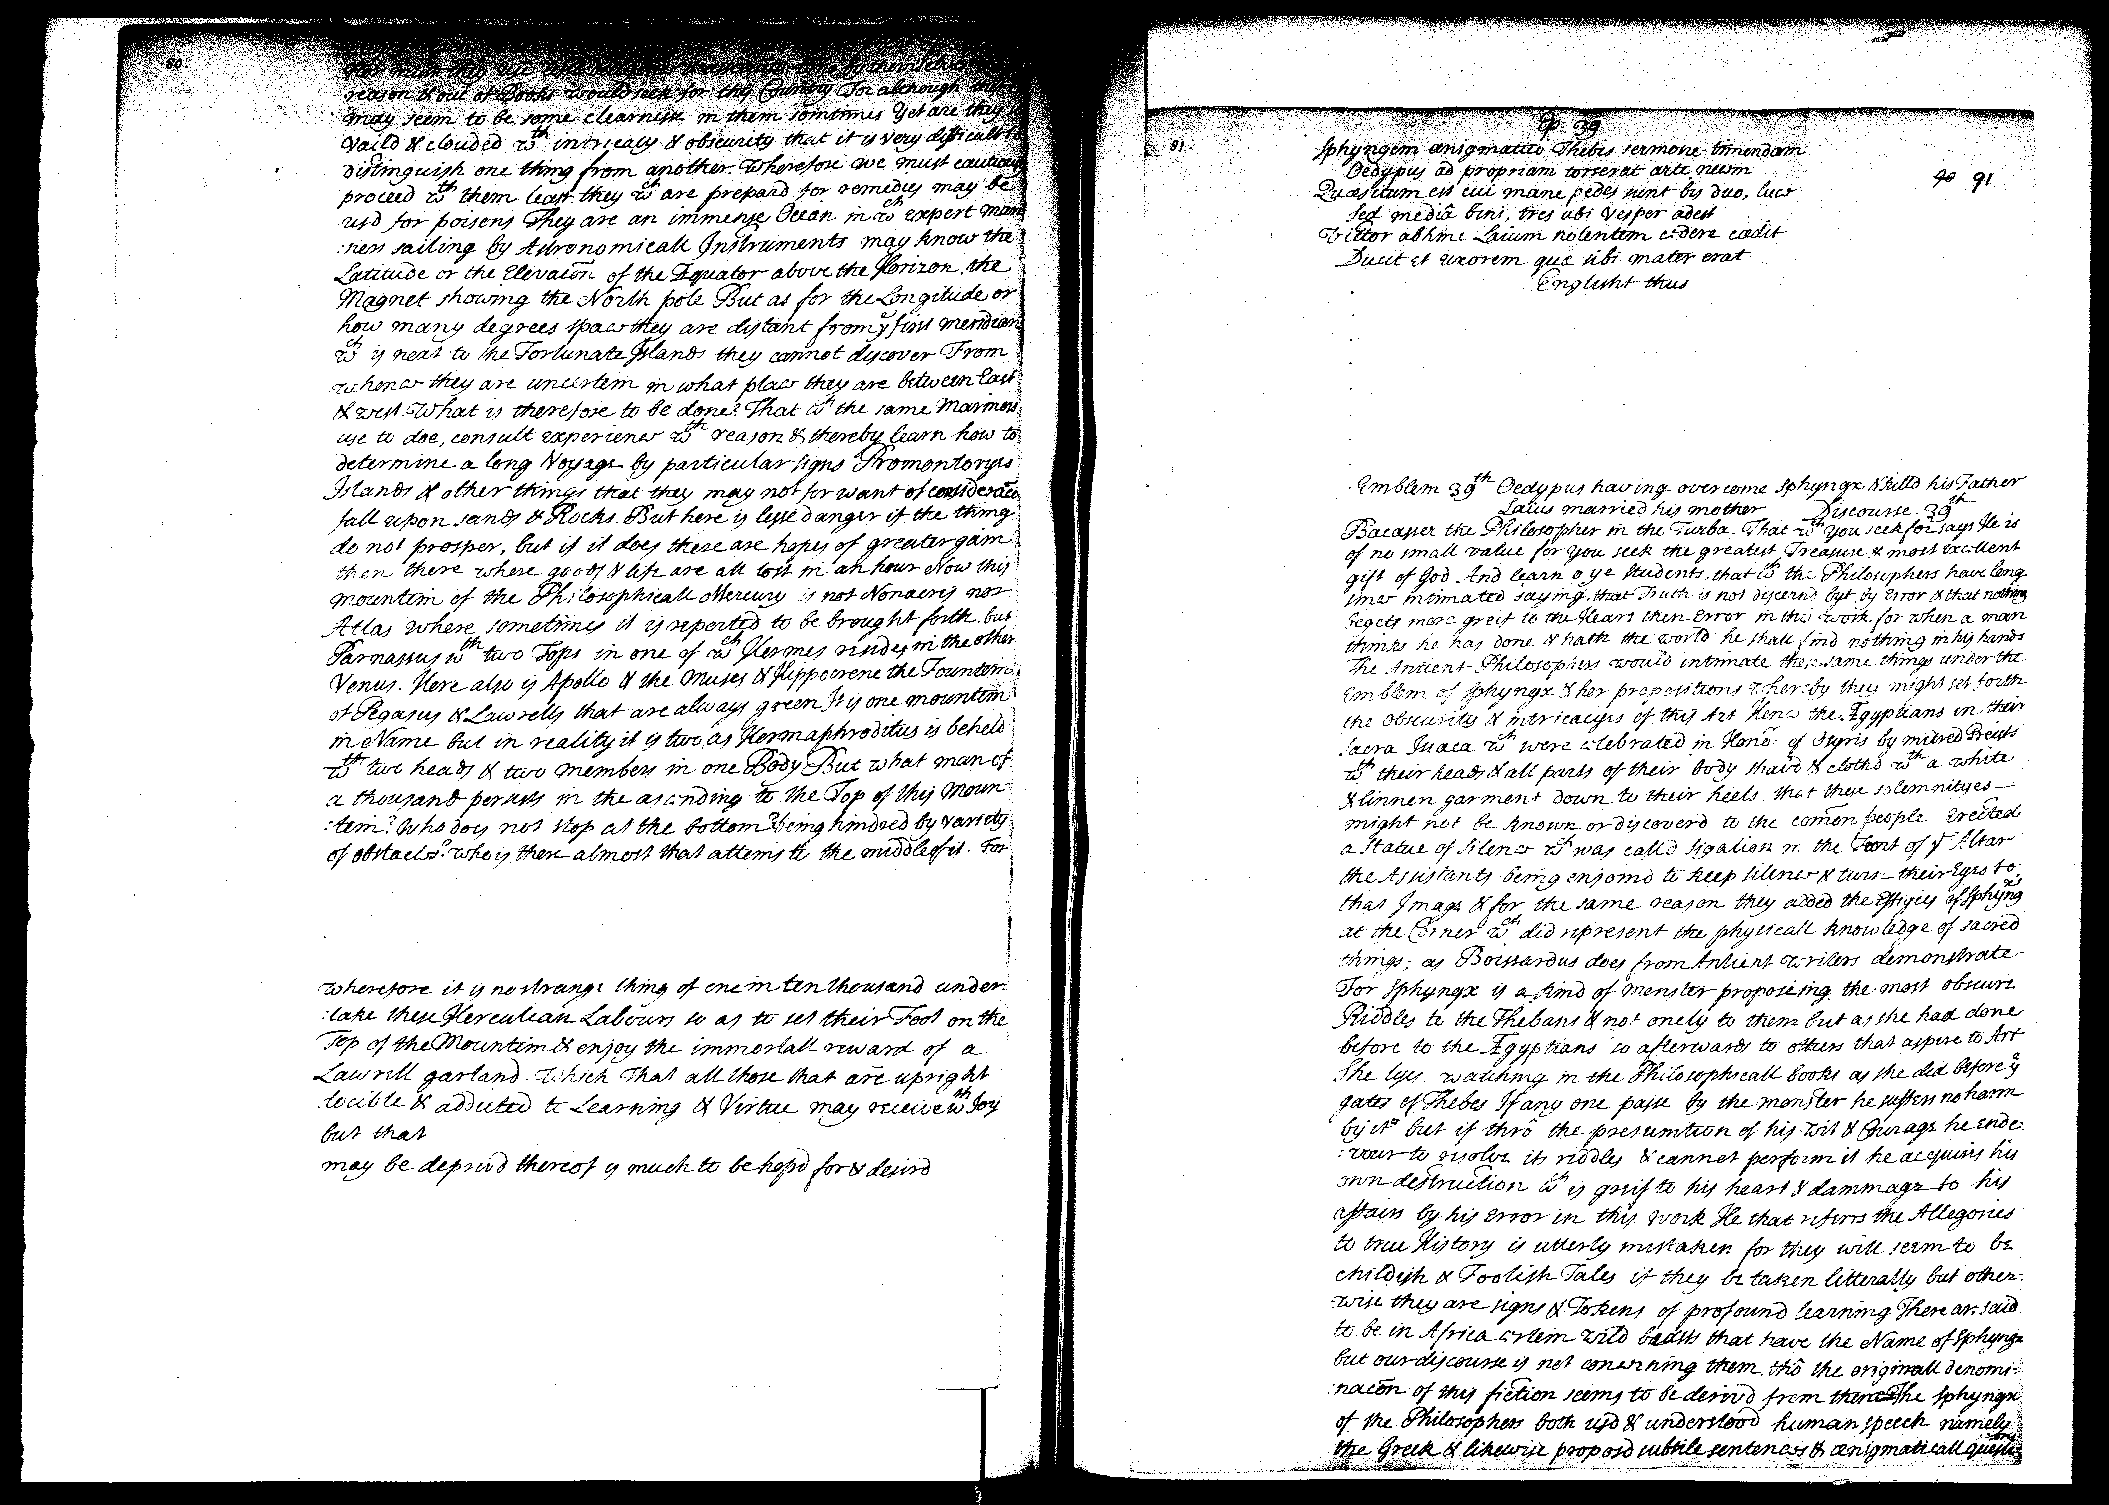 90
reason & out of Books would seek for this Country For although there
may seem to be some clearness in them somtimes Yet are they
Vaild & clouded wth intricacy & obscurity that it is very difficult to
distinguish one thing from another. Wherefore we must cautiously
proceed wth them least they wch are prepard for remedies may be
usd for poisens They are an immense Ocean in wch expert mari
:ners sailing by Astronomicall Instruments may know the
Latitude or the Elevacõn of the Equator above the Horizon, the
Magnet showing the North pole But as for the Longitude or
how many degrees space they are distant from ye first meridian
wch is next to the Fortunate Islands they cannot discover From
whence they are uncertein in what place they are between East
& west. What is therefore to be done? That wch the same Mariners
use to doe, consult experience wth reason & thereby learn how to
determine a long Voyage by particular signs Promontoryes
Islands & other things that they may not for want of consideracõn
fall upon sands & Rocks. But here is lesse danger if the thing
do not prosper, but if it does there are hopes of greater gain
then there where goods & life are all lost in an hour Now this
mountein of the Philosophicall Mercury is not Nonacris nor
Atlas where sometimes it is reported to be brought forth but
Parnassus wth two Tops in one of wch Hermes resides in the other
Venus. Here also is Apollo & the Muses & Hippocrene the Fountein
of Pegasus & Lawrells that are always green It is one mountein
in Name but in reality it is two, as Hermaphroditus is beheld
wth two heads & two members in one Body But what man of
a thousand persists in the ascending to the Top of this Moun
:tein? Who does not stop at the bottom? being hindred by variety
of obstacles? who is there almost that atteins to the middle of it. For
wherefore it is no strange thing of one in ten thousand under:
:take these Herculean Labours so as to set their Foot on the
Top of the Mountein & enjoy the immortall reward of a
Lawrell garland. Which that all those that are upright
docible & addicted to Learning & Virtue may receive wth Joy
but that
may be deprivd thereof is much to be hopd for & desird
91
Ep. 39
Sphyngem ænigmatico Thebis sermone timendam
Oedypus ad propriam torserat arte necem
Quæsitum est cui mane pedes sint bis duo, luce
Sed mediâ bini, tres ubi vesper adest
Victor abhinc Laium nolentem cedere cædit
Ducit et uxorem quæ sibi mater erat
Englisht thus
90 91
Emblem 39th Oedypus having overcome Sphyngx & killd his Father
Laius married his mother Discourse. 39th
Bacasser the Philosopher in the Turba. That wch you seek for says He is
of no small value for you seek the greatest Treasure & most excellent
gift of God. And learn o ye students, that wch the Philosophers have long
since intimated saying, that Truth is not discernd but by Error & that nothing
begets more greif to the Heart then Error in this work for when a man
thinks he has done & hath the world he shall find nothing in his hands
The Antient Philosophers would intimate these same things under the
Emblem of Sphyngx & her propositions whereby they might set forth
the obscurity & intricacyes of this Art Hence the Ægyptians in their
Sacra Isiaca wch were celebrated in Honõ of Osyris by mitred Preists
wth their heads & all parts of their body shavd & clothd wth a white
& linnen garment down to their heels that these solemnityes
might not be known or discoverd to the comõn people Erected
a Statue of Silence wch was calld Sigalion in the Front of ye Altar
the Assistants being enjoind to keep silence & turn their Eyes to
that Image & for the same reason they added the Effigies of Sphyngxs
at the Corner wch did represent the physicall knowledge of sacred
things; as Boissardus does from Antient writers demonstrate
For Sphyngx is a kind of Monster proposeing the most obscure
Riddles to the Thebans & not onely to them but as she had done
before to the Ægyptians so afterwards to others that aspire to Art
She lyes watching in the Philosophicall books as she did before ye
gates of Thebes If any one passe by the monster he suffers no harm
by it but if thrô the presumtion of his wit & Courage he ende
:vour to resolve its riddles & cannot perform it he acquires his
own destruction wch is greif to his heart & dammage to his
affairs by his Error in this work He that referrs the Allegories
to true History is utterly mistaken for they will seem to be
childish & Foolish Tales if they be taken litterally but other:
:wise they are signs & Tokens of profound learning There are said
to be in Africa certein wild beasts that have the Name of Sphyngx
but our discourse is not concerning them thô the originall denomi:
:nacõn of this fiction seems to be derivd from thence The Sphyngx
of the Philosophers both usd & understood human speech namely
the Greek & likewise proposd subtile sentences & ænigmaticall questi